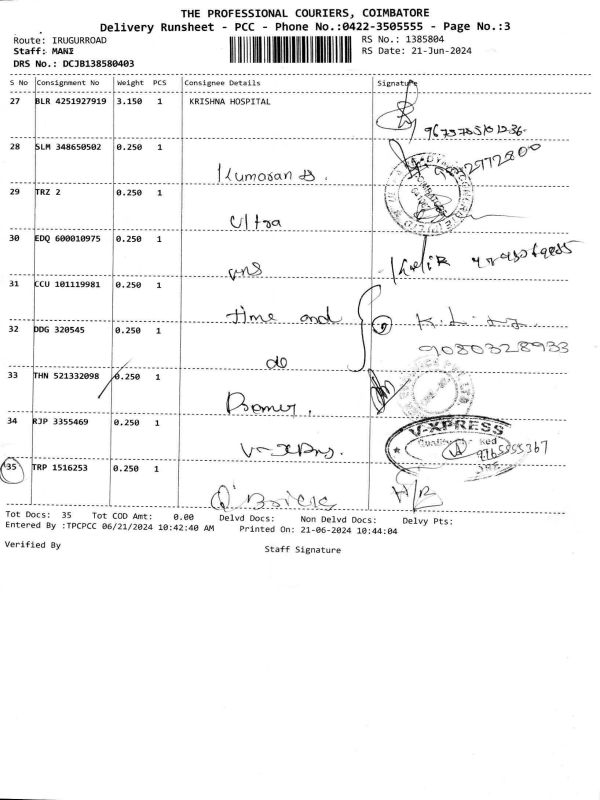 THE PROFESSIONAL COURIERS, COIMBATORE
Delivery Runsheet - PCC - Phone No.:0422-3505555 - Page No.:3
Route: IRUGURROAD
RS No.: 1385804
Staff: MANI
RS Date: 21-Jun-2024
DRS No.: DCJB138580403
S No Consignment No Weight PCS Consignee Details Signature
27 BLR 4251927919 3.150 1 KRISHNA HOSPITAL
28 SLM 348650502 0.250 1
Kumaran B.
29 TRZ 2 0.250 1
Ultra
30 EDQ 600010975 0.250 1
31 CCU 101119981 0.250 1
time and
K.
32 DDG 320545 0.250 1
do
9080328933
33 THN 521332098 0.250 1
34 RJP 3355469 0.250 1
V-XPRESS
9765555367
35 TRP 1516253 0.250 1
Tot Docs: 35 Tot COD Amt: 0.00 Delvd Docs: Non Delvd Docs: Delvy Pts:
Entered By :TPCPCC 06/21/2024 10:42:40 AM Printed On: 21-06-2024 10:44:04
Verified By
Staff Signature